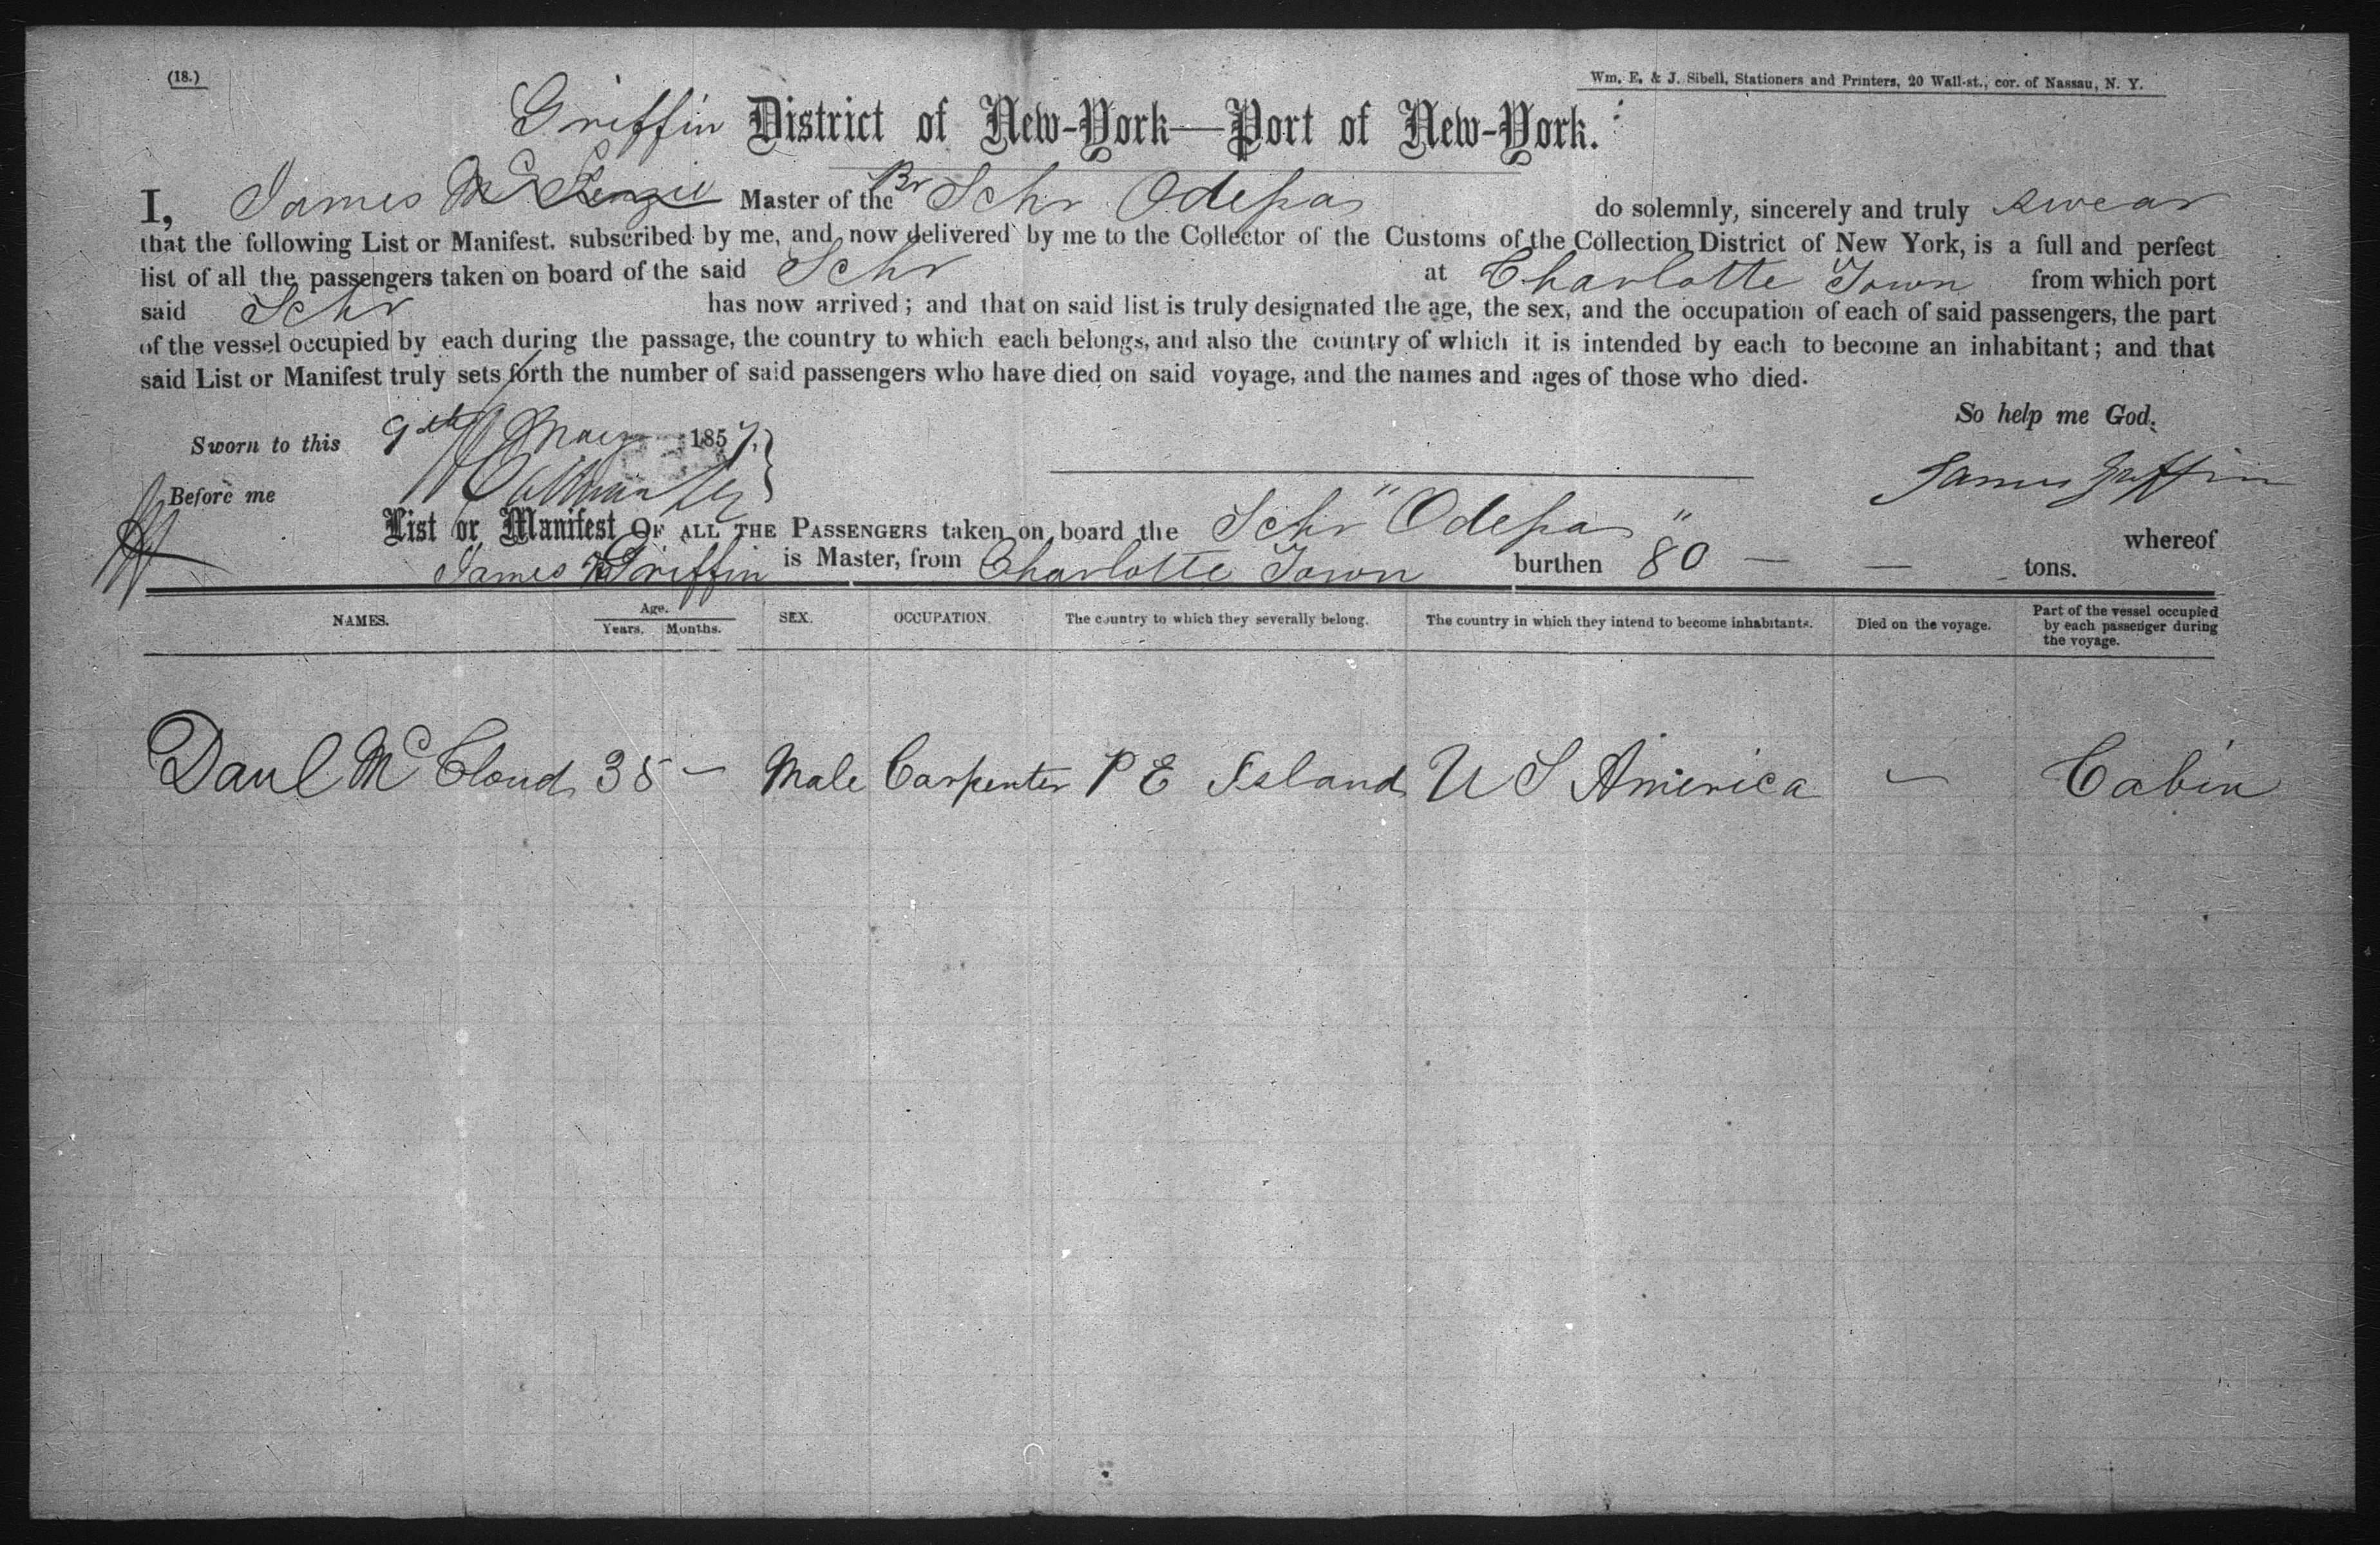 (18.)
Wm. E. & J. Sibell, Stationers and Printers, 20 Wall-st., cor. of Nassau, N. Y.
Griffin District of New-York—Port of New-York.
I, James Mc Kenzie Master of the Br Schr Odessa do solemnly, sincerely and truly swear
that the following List or Manifest, subscribed by me, and now delivered by me to the Collector of the Customs of the Collection District of New York, is a full and perfect
list of all the passengers taken on board of the said Schr at Charlotte Town from which port
said Schr has now arrived; and that on said list is truly designated the age, the sex, and the occupation of each of said passengers, the part
of the vessel occupied by each during the passage, the country to which each belongs, and also the country of which it is intended by each to become an inhabitant; and that
said List or Manifest truly sets forth the number of said passengers who have died on said voyage, and the names and ages of those who died.
So help me God.
Sworn to this 9th May 1857.
James Griffin
Before me
List or Manifest OF ALL THE PASSENGERS taken on board the Schr "Odessa" whereof
James Griffin is Master, from Charlotte Town burthen 80 — — tons.
NAMES. Age. Years. Months. SEX. OCCUPATION. The country to which they severally belong. The country in which they intend to become inhabitants. Died on the voyage. Part of the vessel occupied by each passenger during the voyage.
Danl Mc Cloud 35 — Male Carpenter P E Island U S America — Cabin